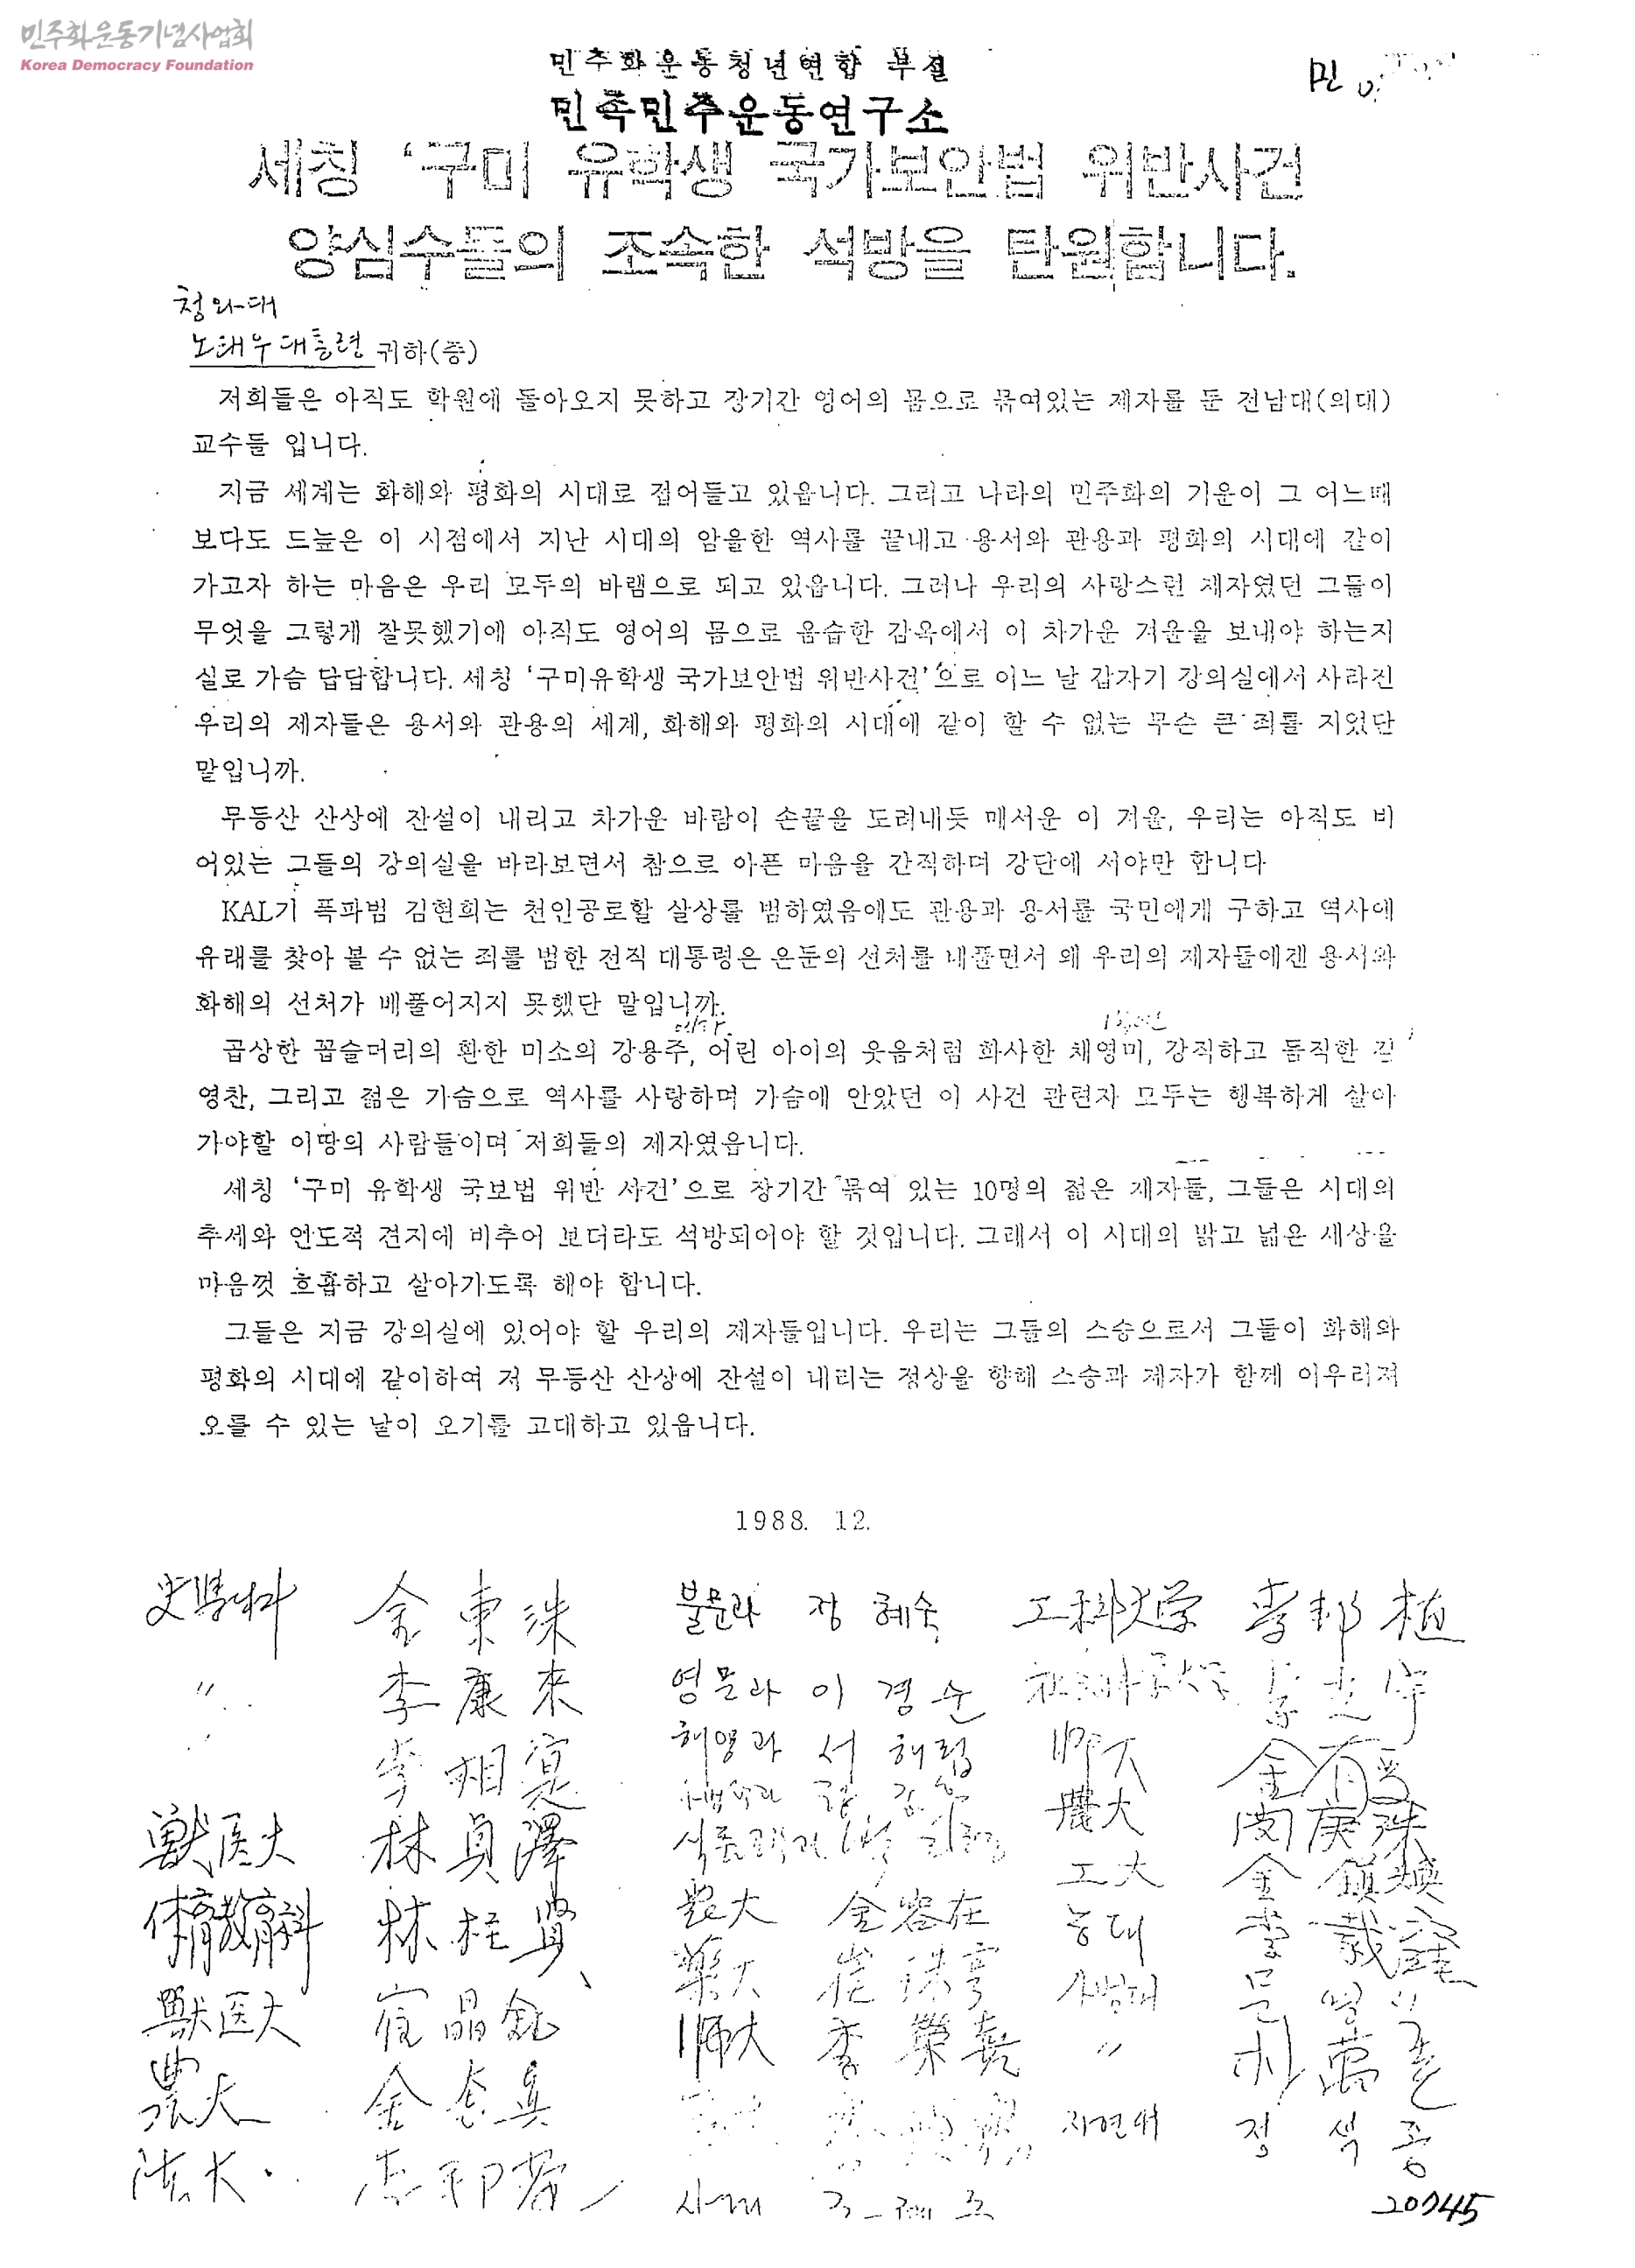 민주화운동기념사업회
Korea Democracy Foundation
민주화운동청년연합 부설
민족민주운동연구소
민
세칭 ‘구미 유학생 국가보안법 위반사건
양심수들의 조속한 석방을 탄원합니다.
청와대
노태우대통령 귀하(증)
저희들은 아직도 학원에 돌아오지 못하고 장기간 영어의 몸으로 묶여있는 제자를 둔 전남대(의대)
교수들 입니다.
지금 세계는 화해와 평화의 시대로 접어들고 있읍니다. 그리고 나라의 민주화의 기운이 그 어느때
보다도 드높은 이 시점에서 지난 시대의 암울한 역사를 끝내고 용서와 관용과 평화의 시대에 같이
가고자 하는 마음은 우리 모두의 바램으로 되고 있읍니다. 그러나 우리의 사랑스런 제자였던 그들이
무엇을 그렇게 잘못했기에 아직도 영어의 몸으로 음습한 감옥에서 이 차가운 겨울을 보내야 하는지
실로 가슴 답답합니다. 세칭 ‘구미유학생 국가보안법 위반사건’으로 어느 날 갑자기 강의실에서 사라진
우리의 제자들은 용서와 관용의 세계, 화해와 평화의 시대에 같이 할 수 없는 무슨 큰 죄를 지었단
말입니까.
무등산 산상에 잔설이 내리고 차가운 바람이 손끝을 도려내듯 매서운 이 겨울, 우리는 아직도 비
어있는 그들의 강의실을 바라보면서 참으로 아픈 마음을 간직하며 강단에 서야만 합니다
KAL기 폭파범 김현희는 천인공로할 살상를 범하였음에도 관용과 용서를 국민에게 구하고 역사에
유래를 찾아 볼 수 없는 죄를 범한 전직 대통령은 은둔의 선처를 내풀면서 왜 우리의 제자들에겐 용서와
화해의 선처가 베풀어지지 못했단 말입니까.
곱상한 꼽슬머리의 환한 미소의 강용주, 어린 아이의 웃음처럼 화사한 채영미, 강직하고 듬직한 김
영찬, 그리고 젊은 가슴으로 역사를 사랑하며 가슴에 안았던 이 사건 관련자 모두는 행복하게 살아
가야할 이땅의 사람들이며 저희들의 제자였읍니다.
세칭 ‘구미 유학생 국보법 위반 사건’으로 장기간 묶여 있는 10명의 젊은 제자들, 그들은 시대의
추세와 인도적 견지에 비추어 보더라도 석방되어야 할 것입니다. 그래서 이 시대의 밝고 넓은 세상을
마음껏 호흡하고 살아가도록 해야 합니다.
그들은 지금 강의실에 있어야 할 우리의 제자들입니다. 우리는 그들의 스승으로서 그들이 화해와
평화의 시대에 같이하여 저 무등산 산상에 잔설이 내리는 정상을 향해 스승과 제자가 함께 어우러져
오를 수 있는 날이 오기를 고대하고 있읍니다.
1988. 12.
史學科 金東洙 불문과 장혜숙 工科大学 李邦植
〃 李康來 영문과 이경순
李相寔 해양과 서해립 師大 金有
獸医大 林貞澤 農大 閔庚洙
工大 金鎮煥
体育教育科 林柱賢 農大 金容在 농대
獸医大 薬大 崔 사범대 문
師大 李榮 〃 朴萬
農大 金 자연대 정석종
法大
20745